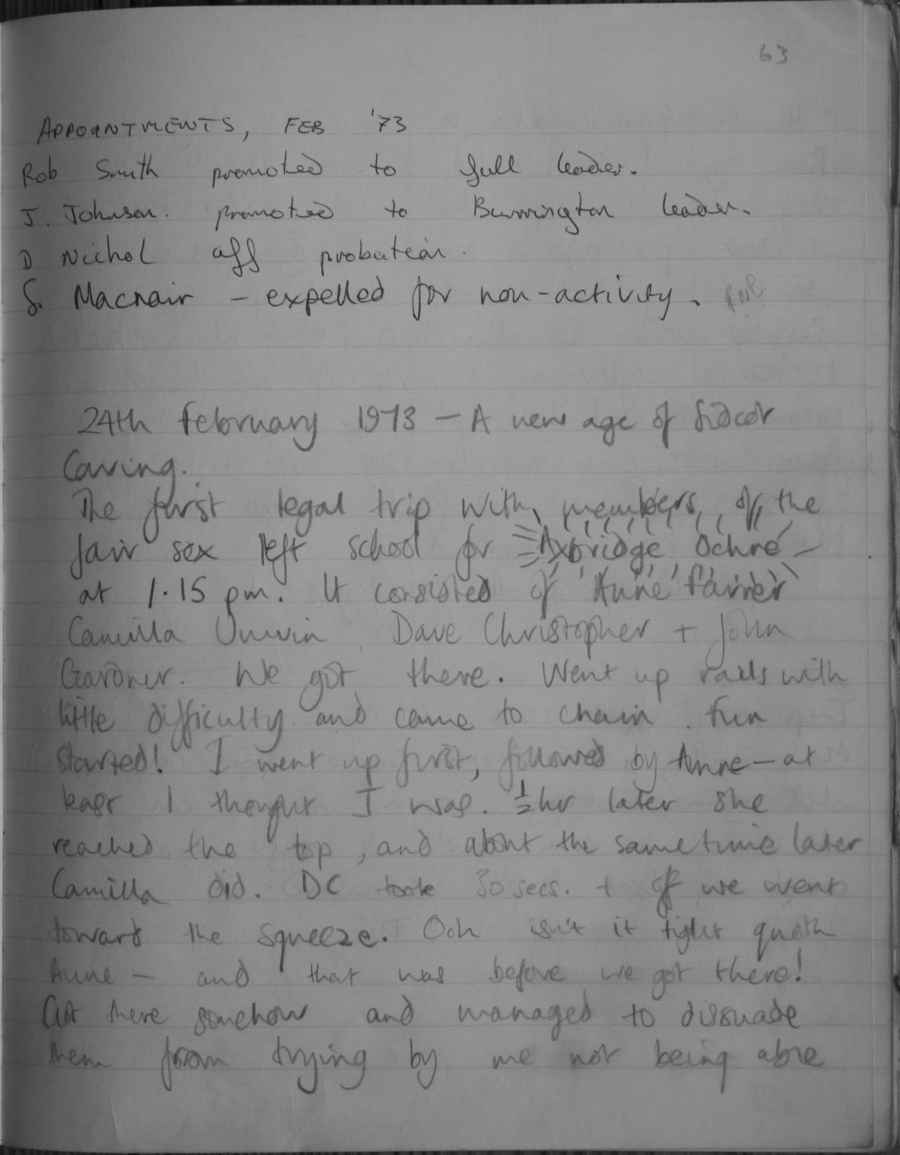 63
APPOINTMENTS, FEB '73
Rob Smith promoted to full leader.
J. Johnson. promoted to Burrington leader.
D Nichol off probation.
S. Macnair - expelled for non-activity.
24th February 1973 - A new age of Sidcot
Caving.
The first legal trip with members of the
fair sex left school for Axbridge Ochre -
at 1.15 pm. It consisted of Anne Farrer
Camilla Unwin, Dave Christopher + John
Gardner. We got there. Went up rails with
little difficulty and came to chain. Fun
started! I went up first, followed by Anne - at
least I thought I was. ½hr later she
reached the top, and about the same time later
Camilla did. DC took 30 secs. + off we went
toward the squeeze. Och isn't it tight quoth
Anne - and that was before we got there!
Got there somehow and managed to dissuade
them from trying by me not being able